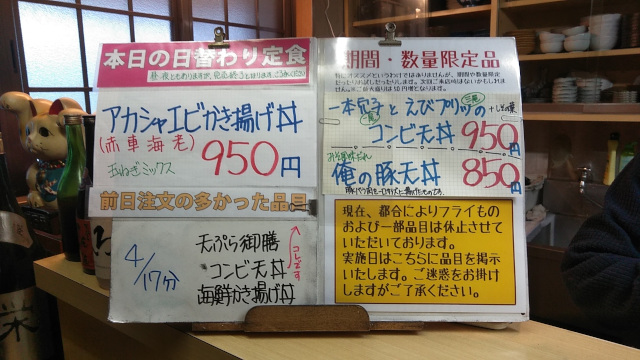 本日の日替わり定食
アカシャエビかき揚げ丼
(赤車海老)
玉ねぎミックス
950円
前日注文の多かった品目
4/17分
天ぷら御膳
コンビ天丼
海鮮かき揚げ丼
コレです
期間・数量限定品
一本穴子とえびプリッの
コンビ天丼 950円
俺の豚天丼 850円
現在、都合によりフライもの
および一部品目は休止させて
いただいております。
実施日はこちらに品目を掲示
いたします。ご迷惑をお掛け
しますがご了承ください。